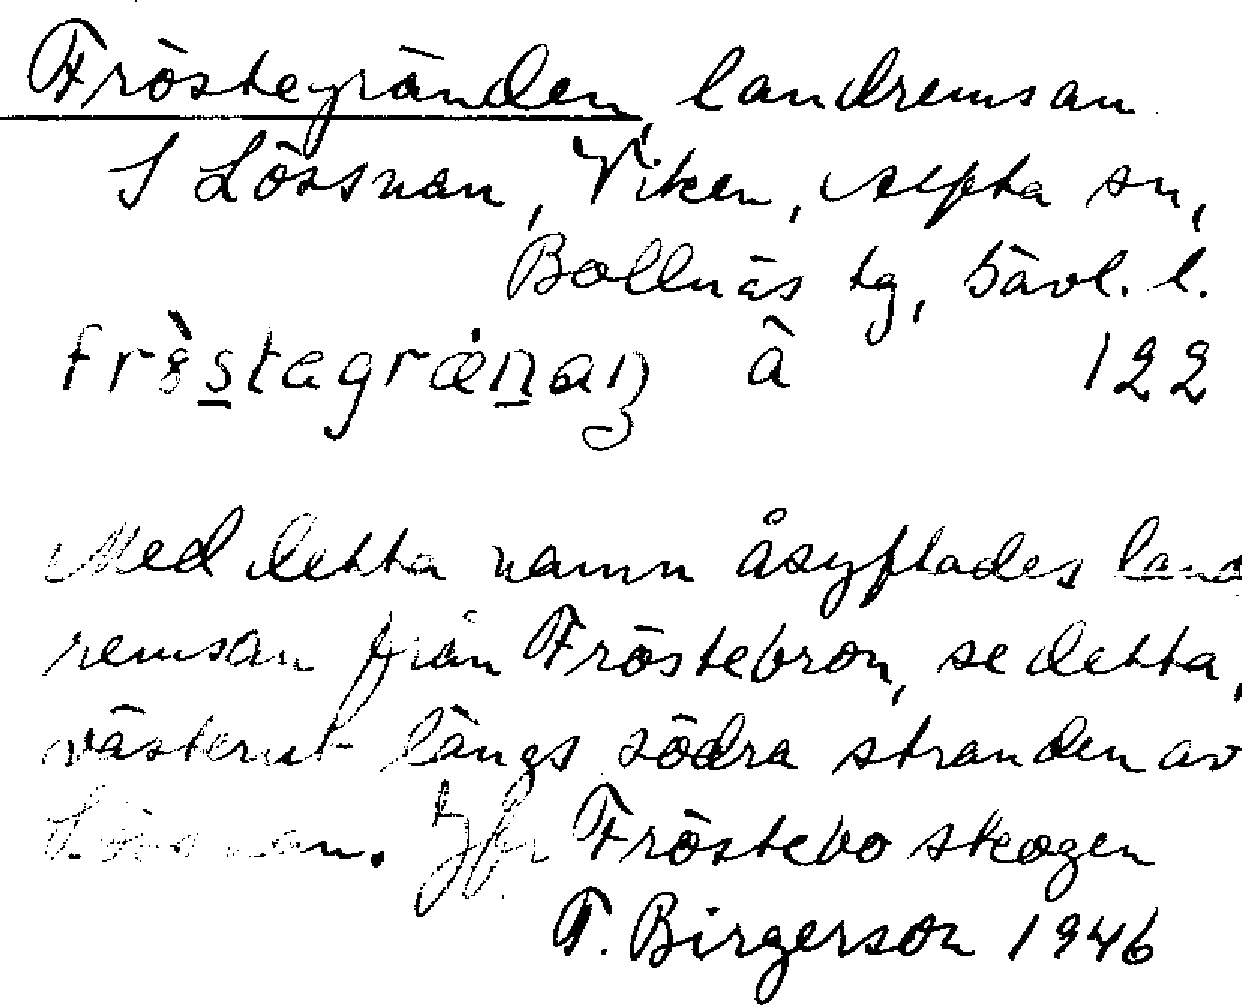 Fröstegränden, landremsan
S Lössnan, Viken, Alfta sn,
Bollnäs tg, Gävl. l.
frö̀stagrǽnan â 122
Med detta namn åsyftades land
remsan från Fröstebron, se detta,
västerut längs södra stranden av
Lössnan. Jfr Fröstebo skogen
T. Birgerson 1946